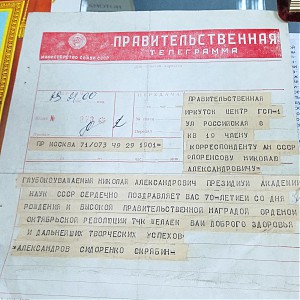 ПРАВИТЕЛЬСТВЕННАЯ
ТЕЛЕГРАММА
МИНИСТЕРСТВО СВЯЗИ СССР
ПРАВИТЕЛЬСТВЕННАЯ
ИРКУТСК ЦЕНТР ГСП-1
УЛ РОССИЙСКАЯ 8
КВ 10 ЧЛЕНУ
КОРРЕСПОНДЕНТУ АН СССР
ФЛОРЕНСОВУ НИКОЛАЮ
АЛЕКСАНДРОВИЧУ=
ПР МОСКВА 71/073 49 29 1901=
ГЛУБОКОУВАЖАЕМЫЙ НИКОЛАЙ АЛЕКСАНДРОВИЧ ПРЕЗИДИУМ АКАДЕМИИ
НАУК СССР СЕРДЕЧНО ПОЗДРАВЛЯЕТ ВАС 70-ЛЕТИЕМ СО ДНЯ
РОЖДЕНИЯ И ВЫСОКОЙ ПРАВИТЕЛЬСТВЕННОЙ НАГРАДОЙ ОРДЕНОМ
ОКТЯБРЬСКОЙ РЕВОЛЮЦИИ ТЧК ЖЕЛАЕМ ВАМ ДОБРОГО ЗДОРОВЬЯ
И ДАЛЬНЕЙШИХ ТВОРЧЕСКИХ УСПЕХОВ=
=АЛЕКСАНДРОВ СИДОРЕНКО СКРЯБИН=